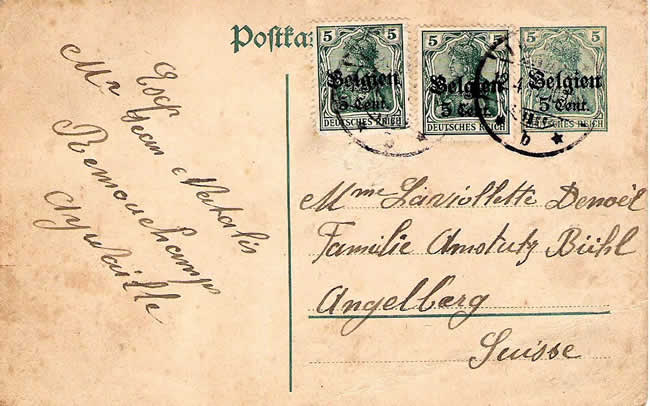 Postka
5 5
Belgien
5 Cent.
DEUTSCHES REICH
5 5
Belgien
5 Cent.
DEUTSCHES REICH
5 5
Belgien
5 Cent.
DEUTSCHES REICH
b
b
Exp
Mr Jean Natalis
Remouchamp
Aywaille
Mme Laviollette Denoël
Familie Amstutz Bühl
Angelberg
Suisse